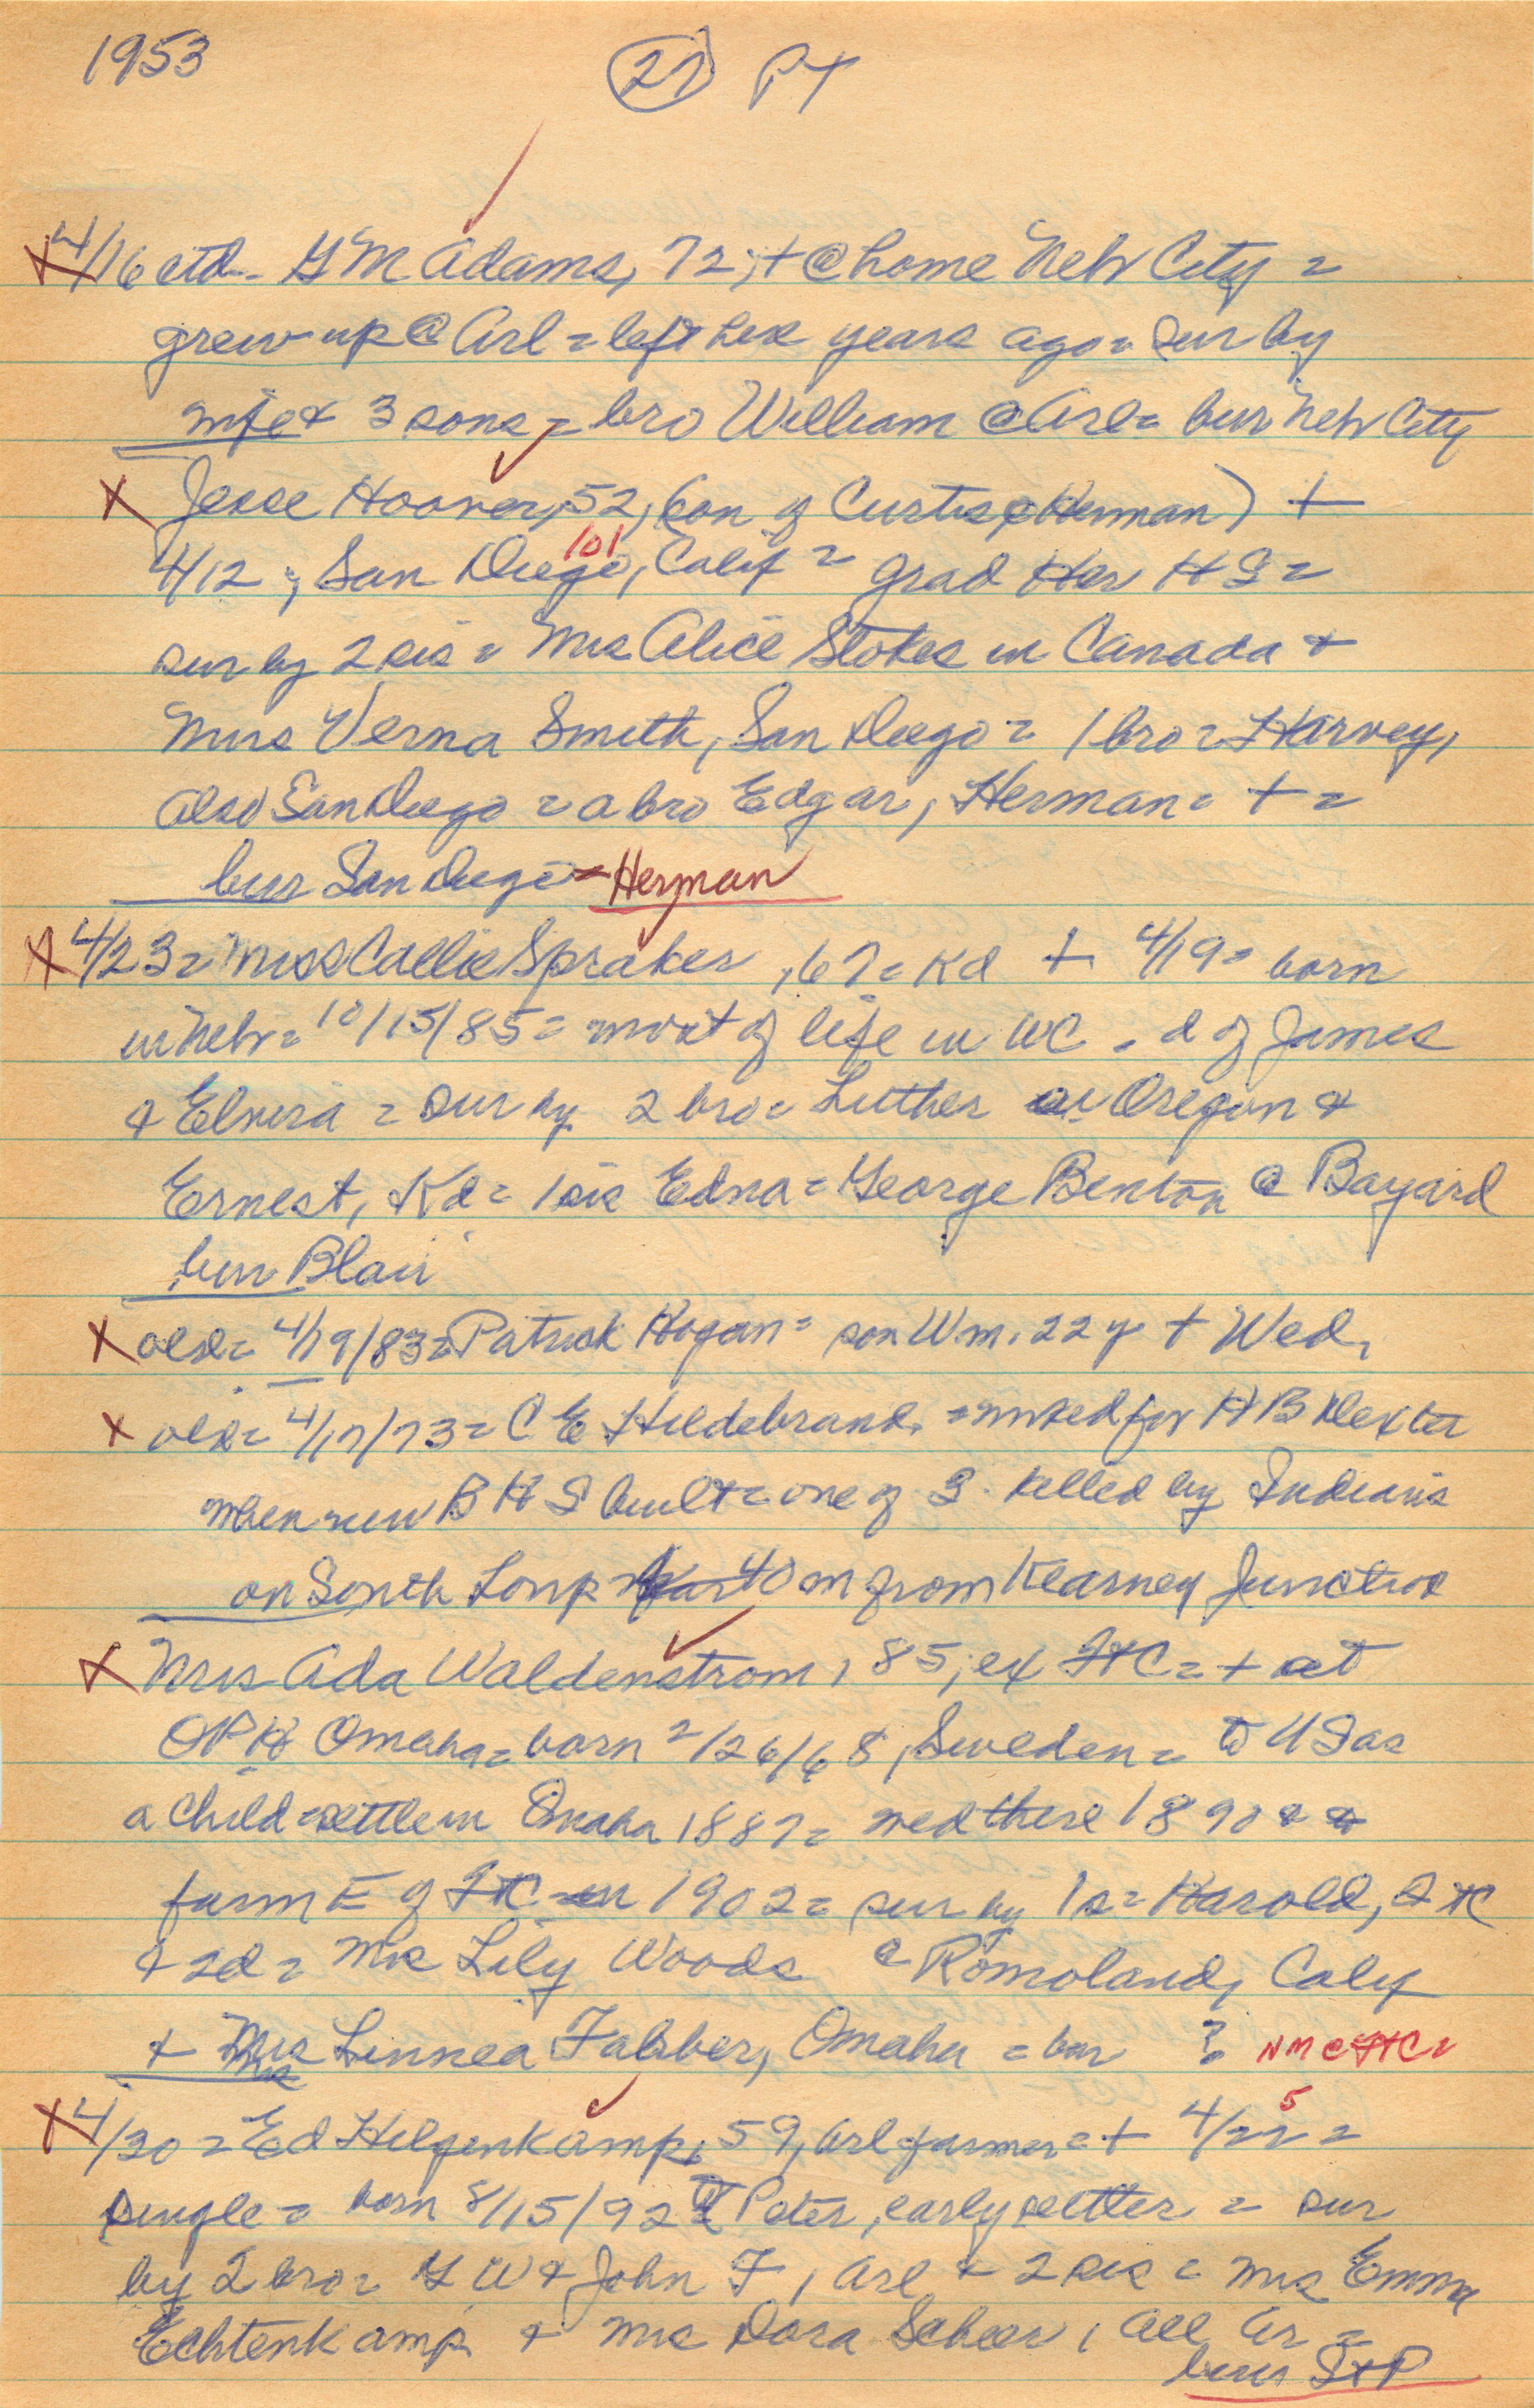 1953 (21) PT
4/16 etd - G M Adams, 72, + @ home Neb City =
grew up @ Arl = left here years ago = sur by
wife + 3 sons = bro William @ Arl = bur Neb City
X Jesse Hoover, 52, (son of Curtis, Herman) +
4/12, San Diego, Calif = grad Her H S =
101
sur by 2 sis = Mrs Alice Stokes in Canada +
Mrs Verna Smith, San Diego = 1 bro = Harvey,
also San Diego = a bro Edgar, Herman = + =
bur San Diego = Herman
X 4/23 = Miss Callie Spraker, 67 = Kd + 4/19 = born
in Neb = 10/15/85 = most of life in WC = d of James
& Elvira = sur by 2 bro = Luther in Oregon &
Ernest, Kd = 1 sis Edna = George Benton @ Bayard
bur Blair
X old = 4/19/83 = Patrick Hogan = son Wm. 22 y + Wed,
X old = 4/17/73 = C E Hildebrand, = worked for H B Dexter
when new B H S built = one of 3 killed by Indians
on South Loup 40 m from Kearney Junction
X Mrs Ada Waldenstrom, 85, ex FtC = + at
O P H Omaha = born 2/26/68, Sweden = to US as
a child = settle in Omaha 1887 = wed there 1890 & to
farm E of FtC in 1902 = sur by 1 s = Harold, FtC
& 2d = Mrs Lily Woods @ Romoland, Calif
+ Mrs Linnea Falsber, Omaha = bur ? NM @ FtC =
X 4/30 = Ed Hilgenkamp, 59, Arl farmer = + 4/22 =
5
single = born 8/15/92 Peter, early settler = sur
by 2 bro = G W & John F, Arl + 2 sis = Mrs Emma
Echtenkamp & Mrs Dora Scheer, all Ar =
bur StP